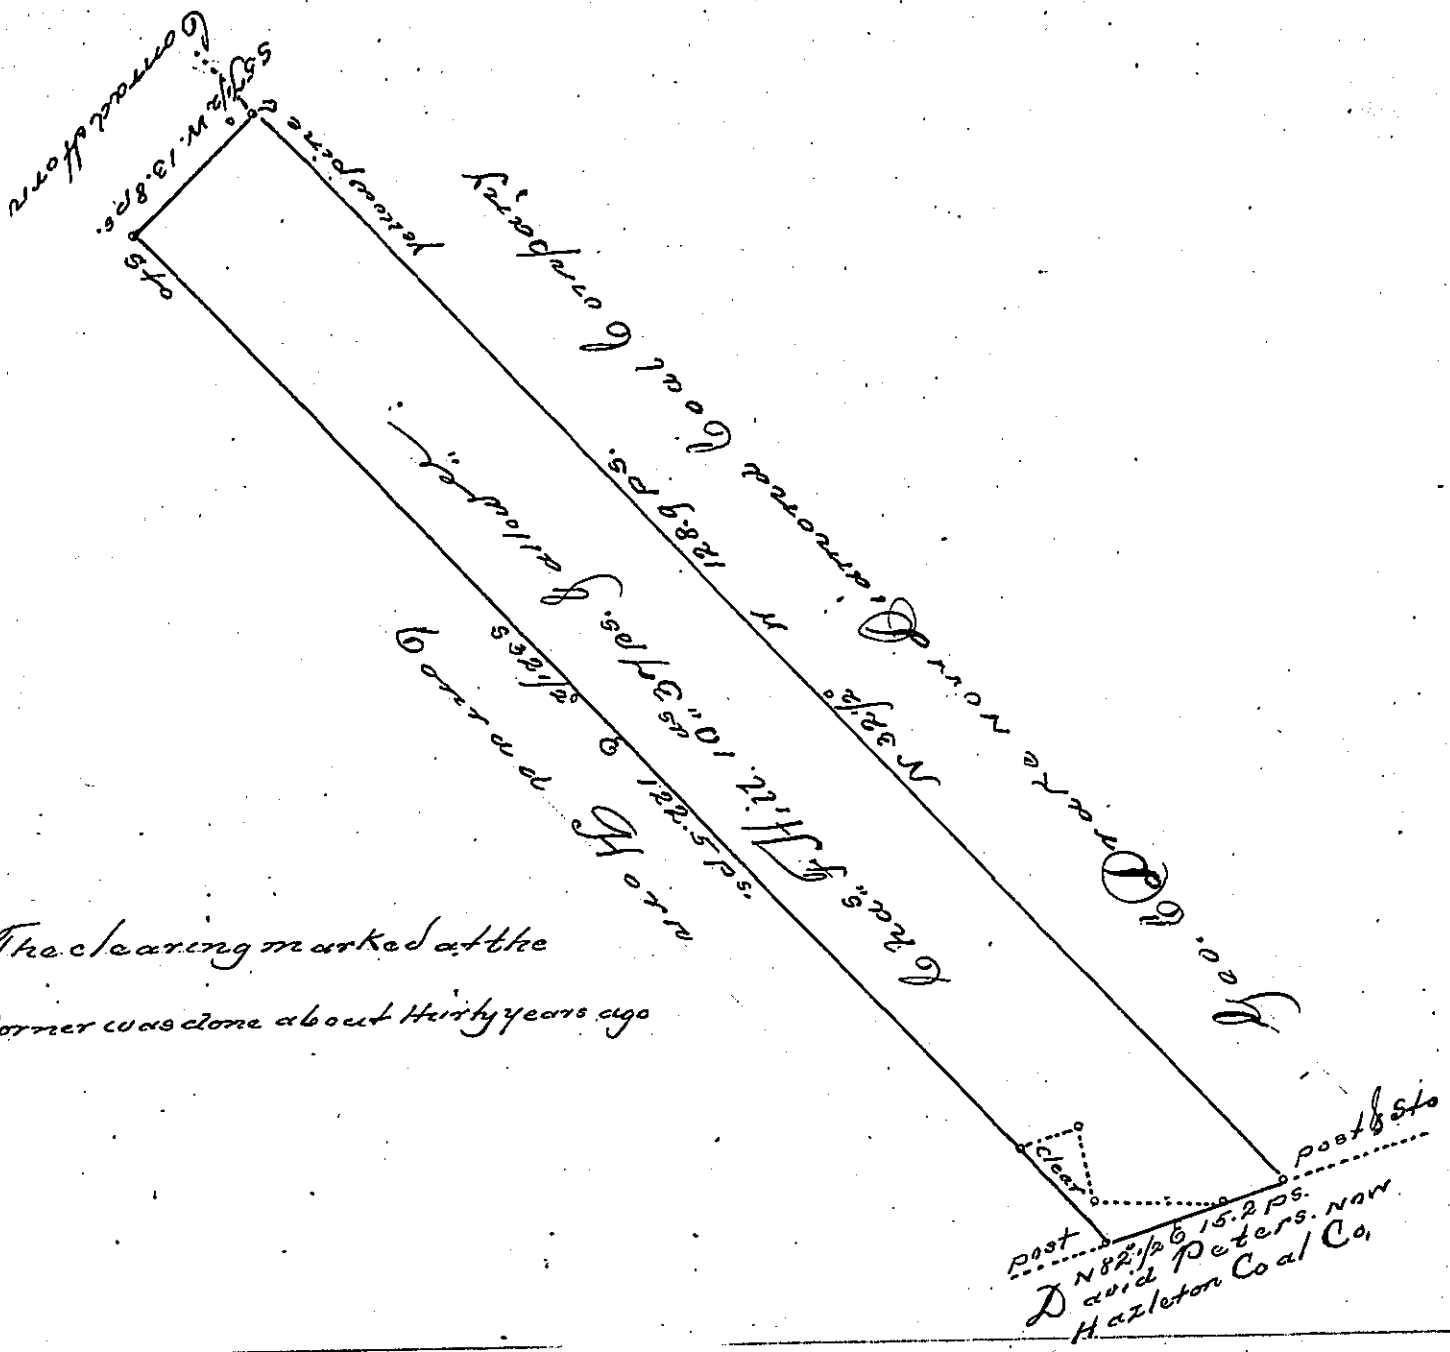 Conrad Horn
S 57 1/2° W. 13.8 ps.
yellow pine
sto
Geo. C Drake now Diamond Coal Company
N 32 1/2° W 128.9 ps.
Chas. F Hill. 10 as 37 ps. & allowe.
S 32 1/2° E 122.5 ps.
Conrad Horn
The clearing marked at the
corner was done about thirty years ago
clear
post & sto
post
N 82 1/2 E 15.2 ps.
David Peters. now
Hazleton Coal Co.